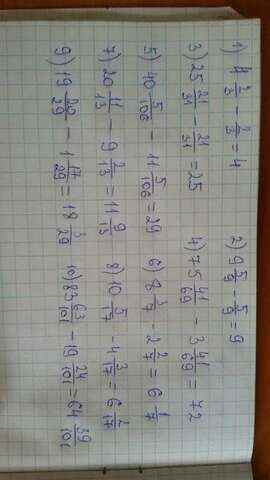 1) 4 2/3 - 2/3 = 4
2) 9 5/9 - 5/9 = 9
3) 25 21/31 - 21/31 = 25
4) 75 41/69 - 3 41/69 = 72
5) 40 5/106 - 11 5/106 = 29
6) 8 3/7 - 2 2/7 = 6 1/7
7) 20 11/13 - 9 2/13 = 11 9/13
8) 10 5/17 - 4 3/17 = 6 2/17
9) 19 20/29 - 1 17/29 = 18 3/29
10) 83 63/101 - 19 24/101 = 64 39/101